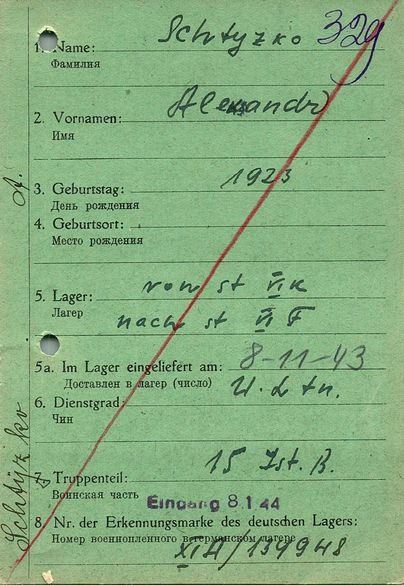 329
1. Name: Schtyzko
Фамилия
2. Vornamen: Alexandr
Имя
3. Geburtstag: 1923
День рождения
4. Geburtsort:
Место рождения
5. Lager: vom st VI K
Лагер
nach st VI F
5a. Im Lager eingeliefert am: 8-11-43
Доставлен в лагер (число)
6. Dienstgrad: U. Ltn.
Чин
7. Truppenteil: 15 Ist. B.
Воинская часть
Eingang 8.1.44
8. Nr. der Erkennungsmarke des deutschen Lagers:
Номер военнопленного в германском лагере
XI A/139948
Schtyzko A.